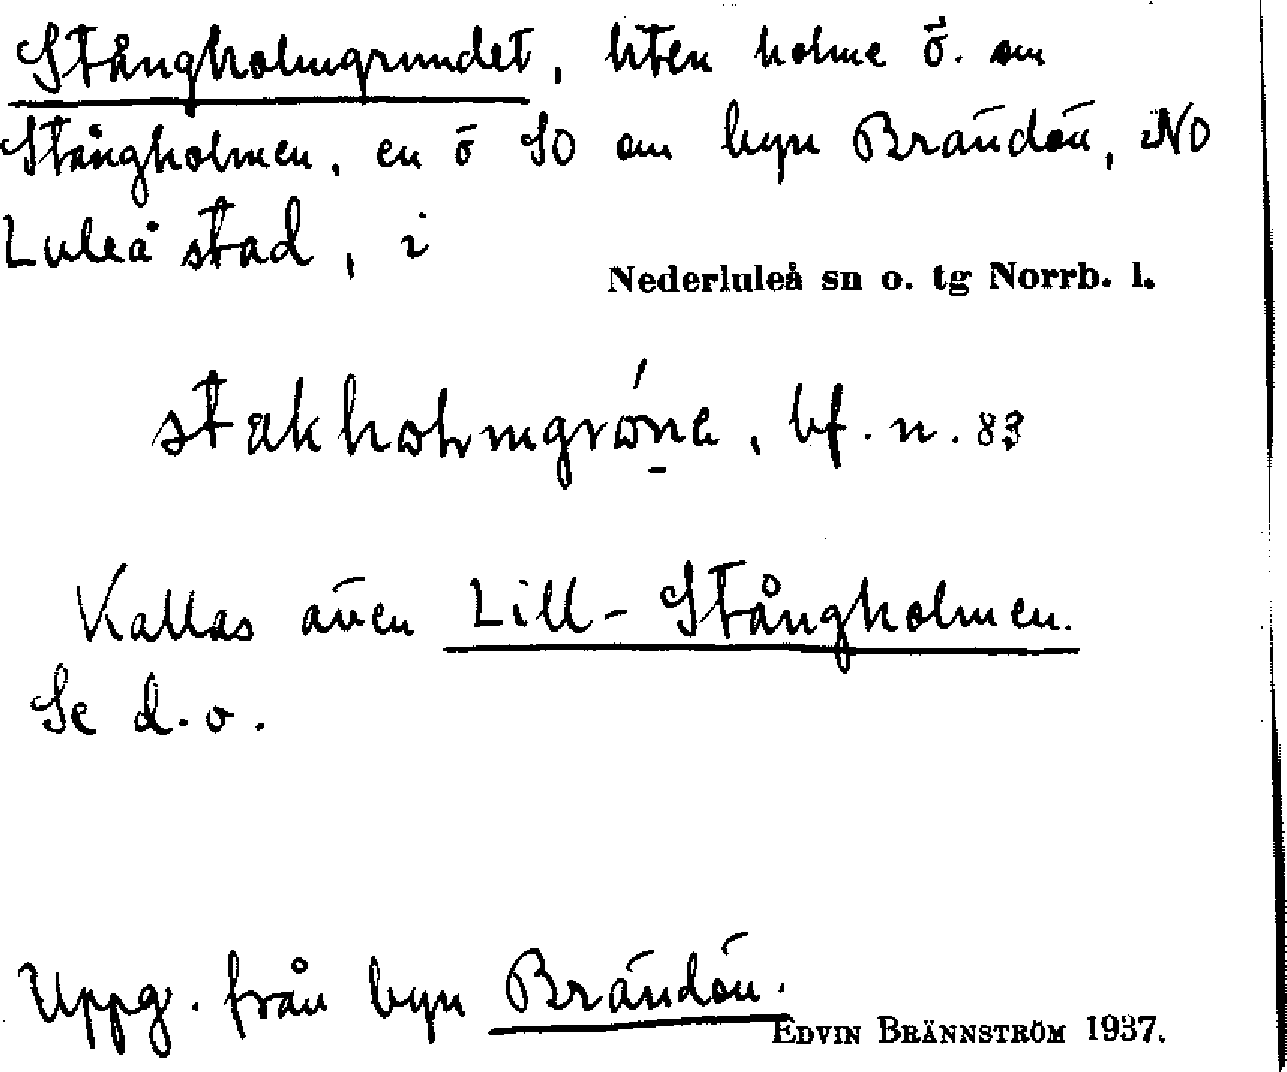 Stångholmgrundet, liten holme ö. om
Stångholmen, en ö SO om byn Brändön, NO
Luleå stad, i
Nederluleå sn o. tg Norrb. l.
bf. n. 83
Kallas även Lill-Stångholmen.
Se d.o.
Uppg. från byn Brändön.
EDVIN BRÄNNSTRÖM 1937.